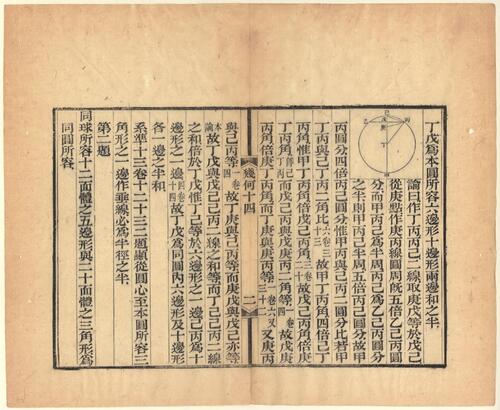 丁戊爲本圓所容六邊形十邊形兩邊和之半
論曰作丁丙丙己二線取庚戊等於戊己
從庚點作庚丙線圓周旣五倍乙己丙圓
分而甲丙己爲半周丙己爲乙己丙圓分
之半則甲丙己半周五倍丙己圓分故甲
丙圓分四倍丙己圓分惟甲丙與己丙二圓分比若甲
丁丙與己丁丙二角比故甲丁丙角四倍己丁
丙角惟甲丁丙角倍庚己丙角故庚己丙角倍己
丁丙角而戊己丙與戊庚丙二角等故戊庚
丙角倍庚丁丙角而丁庚與庚丙等又庚丙
幾何十四
二
與己丙等故丁庚與己丙等而庚戊與戊己亦等
本論故丁戊與戊己己丙二線之和等而丁己己丙二線
之和倍於丁戊惟丁己等於六邊形之一邊己丙爲十
邊形之一邊故丁戊爲同圓內六邊形及十邊形
各一邊之半和
系準十三卷十二十三二題顯從圓心至本圓所容三
角形之一邊作垂線必爲半徑之半
第二題
同球所容十二面體之五邊形與二十面體之三角形爲
同圓所容